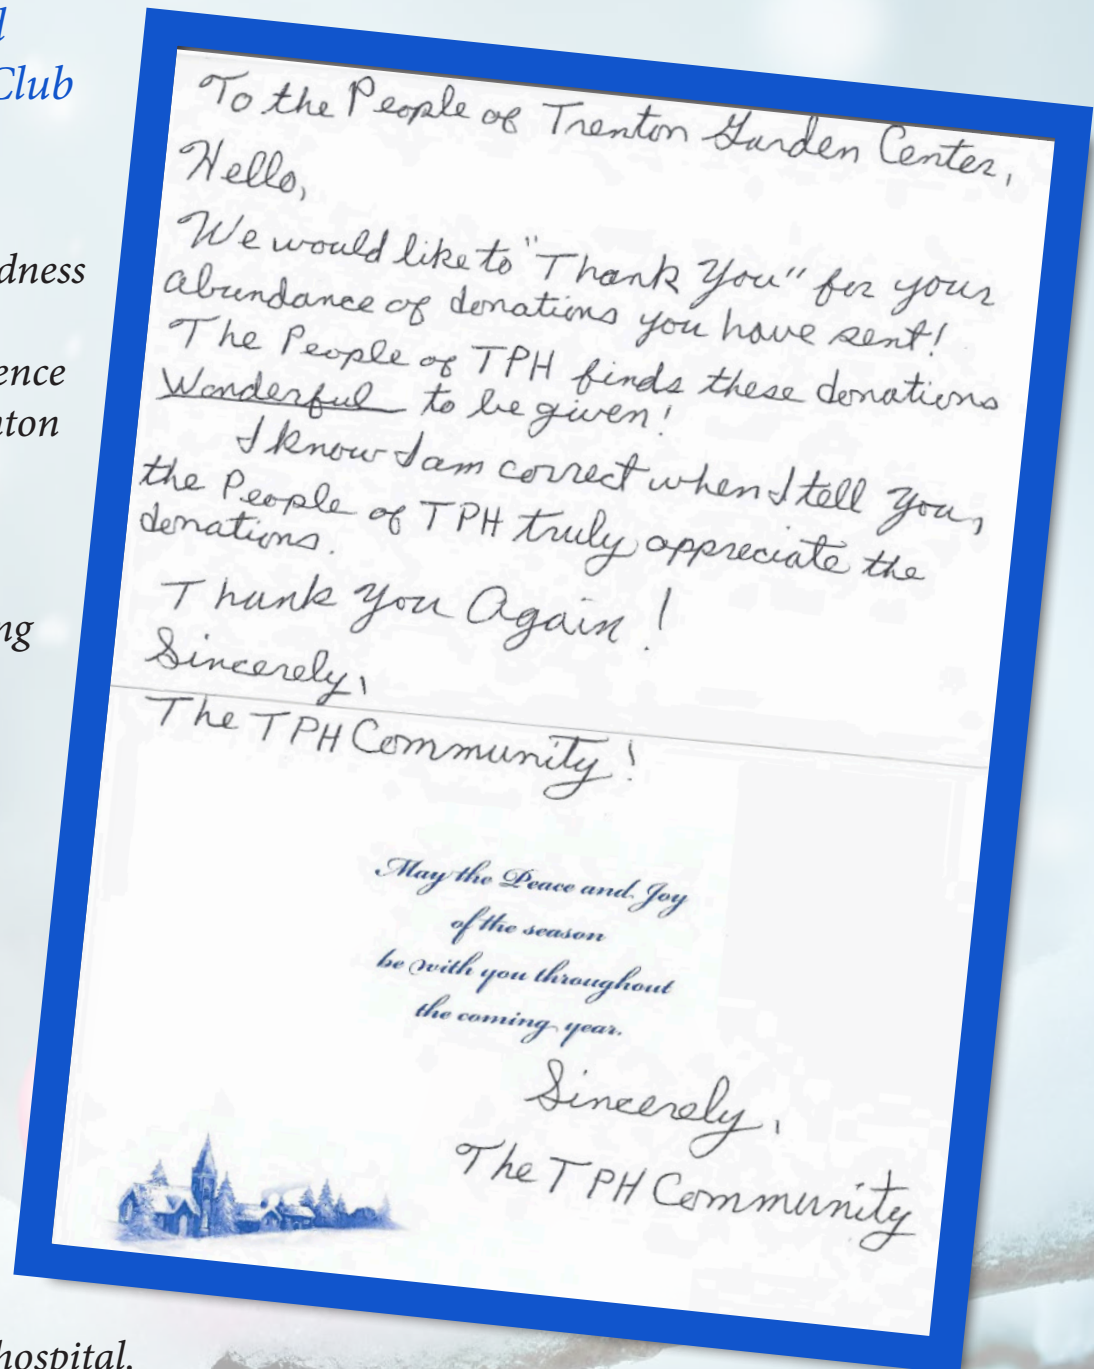 Club
dness
ence
ng
hospital.
To the People of Trenton Garden Center,
Hello,
We would like to "Thank You" for your
abundance of donations you have sent!
The People of TPH finds these donations
Wonderful to be given!
I know I am correct when I tell you,
the People of TPH truly appreciate the
donations.
Thank You Again!
Sincerely,
The TPH Community!
May the Peace and Joy
of the season
be with you throughout
the coming year.
Sincerely,
The TPH Community